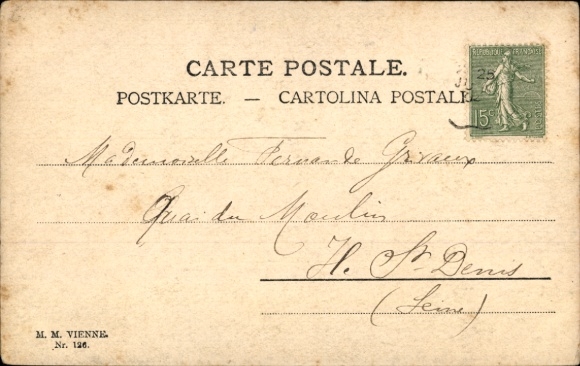 CARTE POSTALE.
POSTKARTE. — CARTOLINA POSTALE
REPUBLIQUE FRANÇAISE
25
15c
Mademoiselle Fernande Grivaux
Quai du Moulin
St Denis
(Seine)
M. M. VIENNE.
Nr. 126.